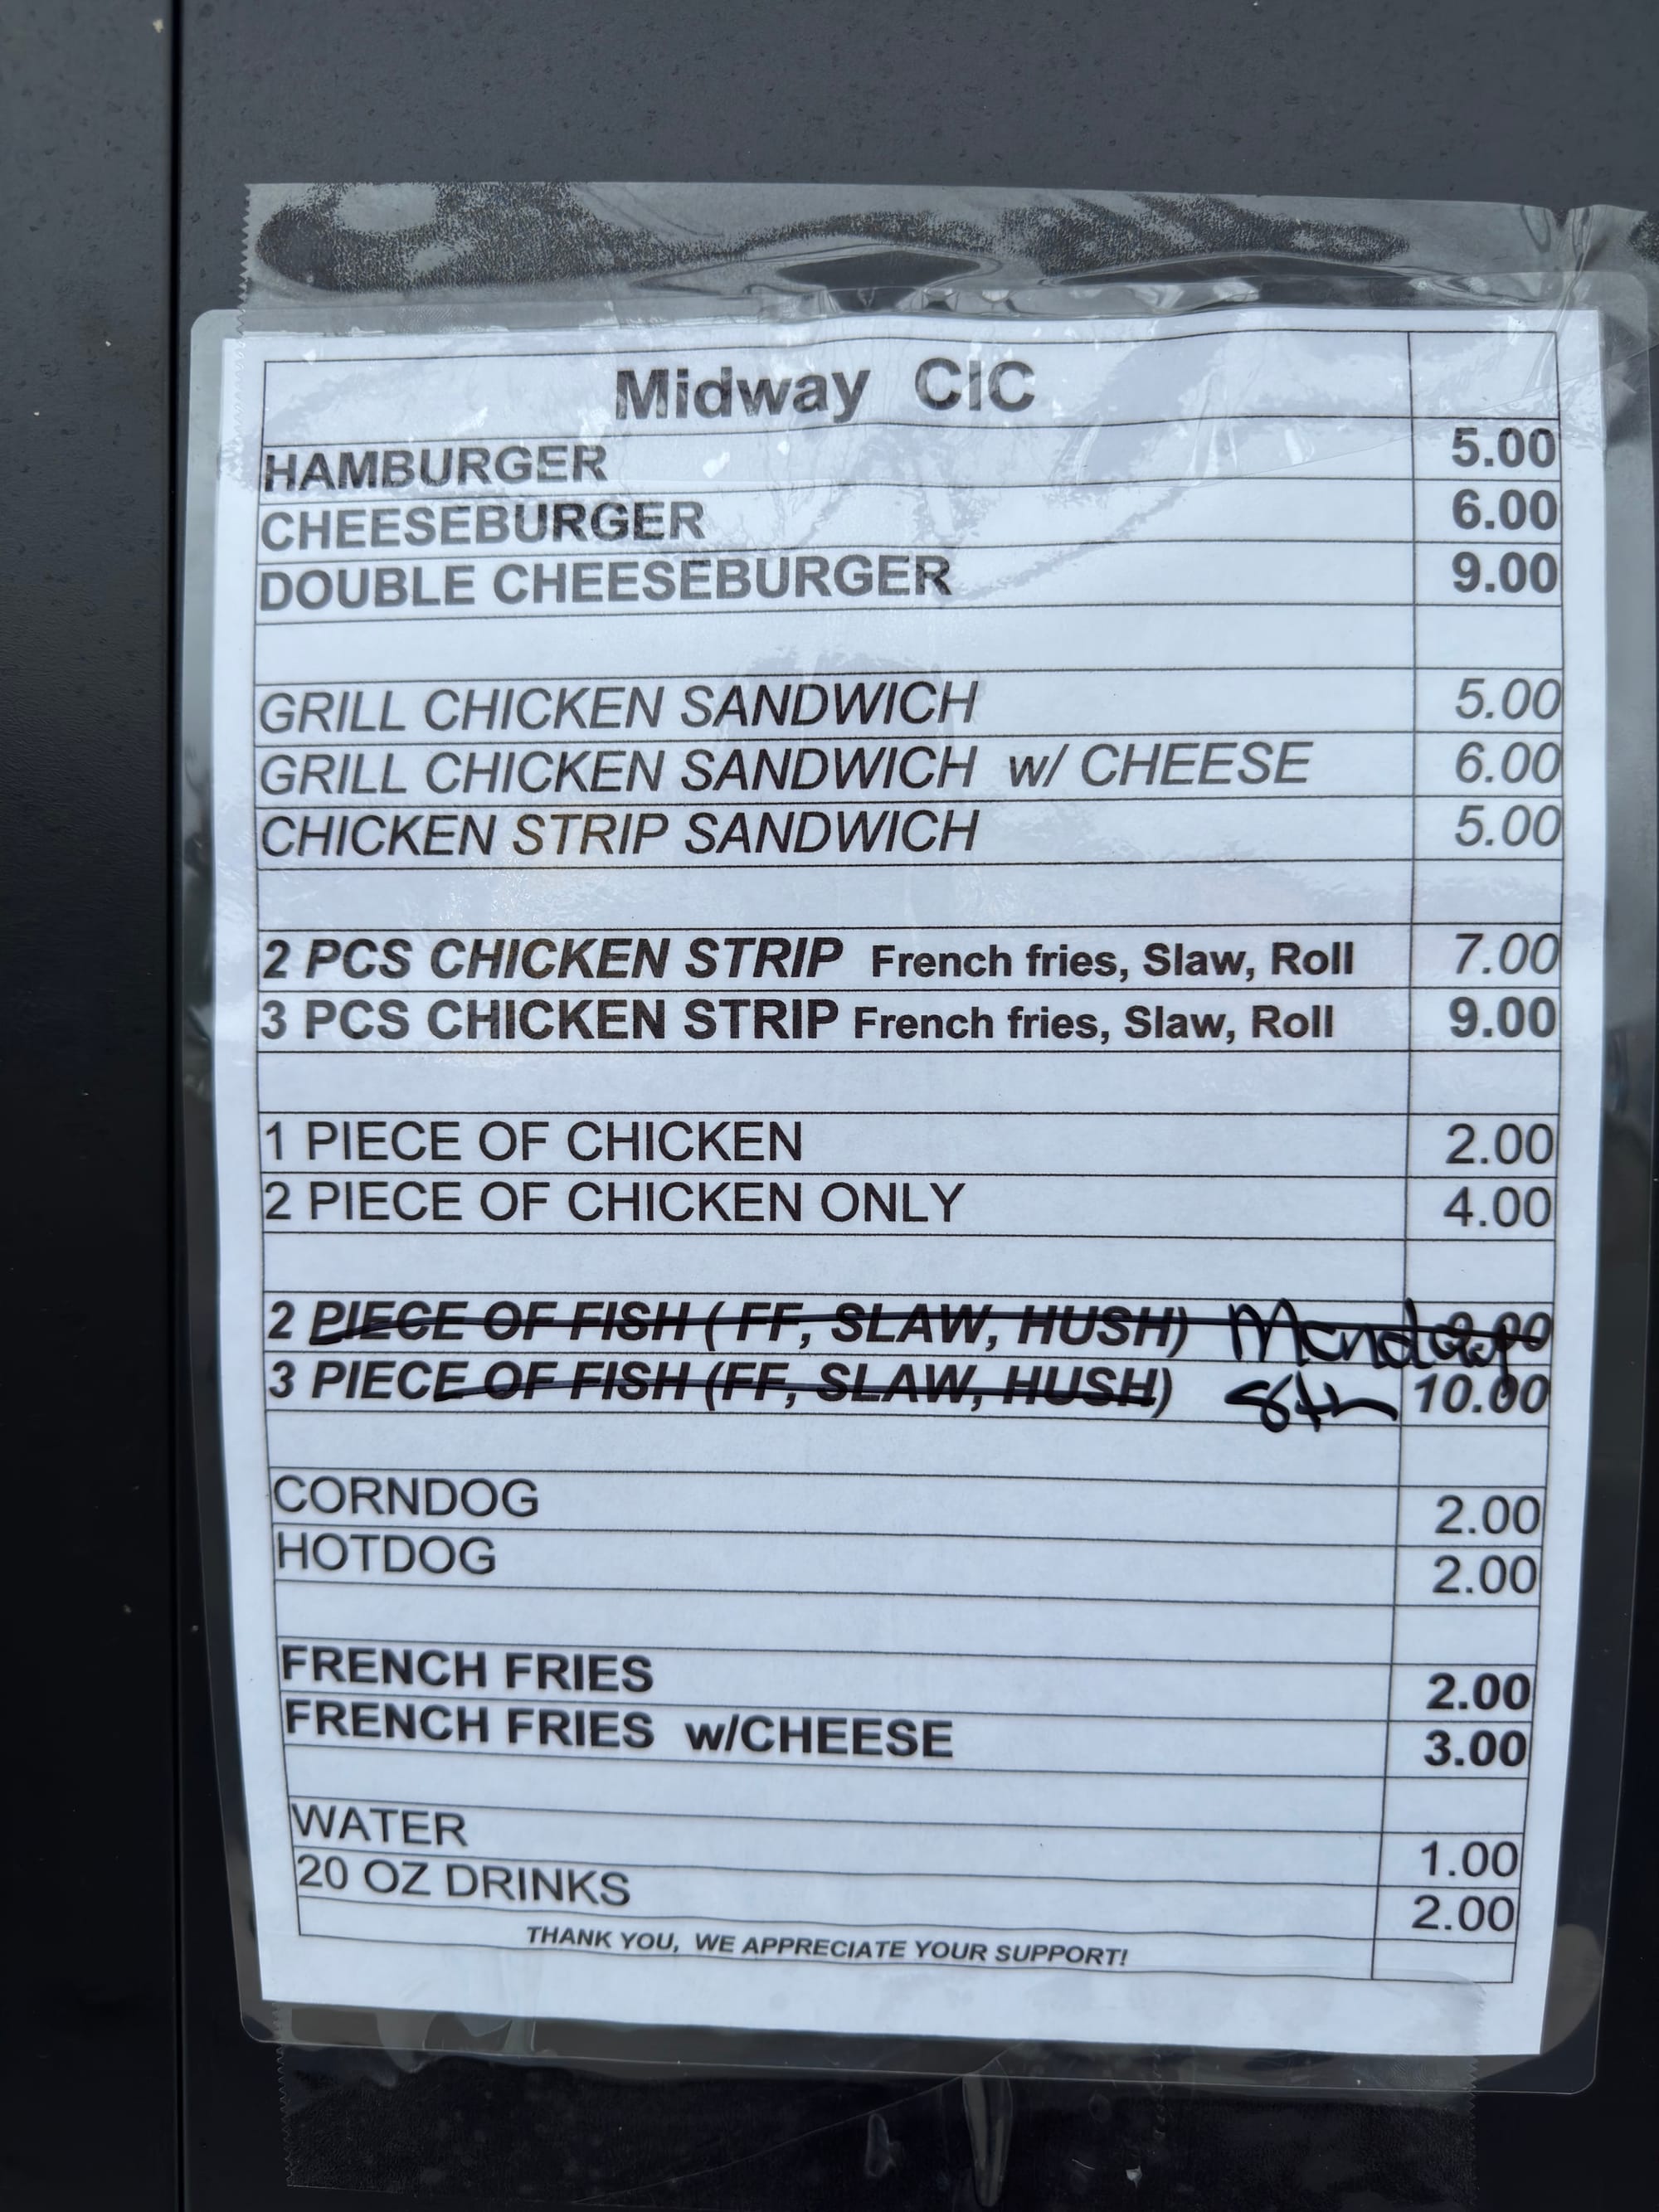 Midway CIC
HAMBURGER 5.00
CHEESEBURGER 6.00
DOUBLE CHEESEBURGER 9.00
GRILL CHICKEN SANDWICH 5.00
GRILL CHICKEN SANDWICH w/ CHEESE 6.00
CHICKEN STRIP SANDWICH 5.00
2 PCS CHICKEN STRIP French fries, Slaw, Roll 7.00
3 PCS CHICKEN STRIP French fries, Slaw, Roll 9.00
1 PIECE OF CHICKEN 2.00
2 PIECE OF CHICKEN ONLY 4.00
2 PIECE OF FISH ( FF, SLAW, HUSH) Monday
3 PIECE OF FISH (FF, SLAW, HUSH) 8th 10.00
CORNDOG 2.00
HOTDOG 2.00
FRENCH FRIES 2.00
FRENCH FRIES w/CHEESE 3.00
WATER 1.00
20 OZ DRINKS 2.00
THANK YOU, WE APPRECIATE YOUR SUPPORT!